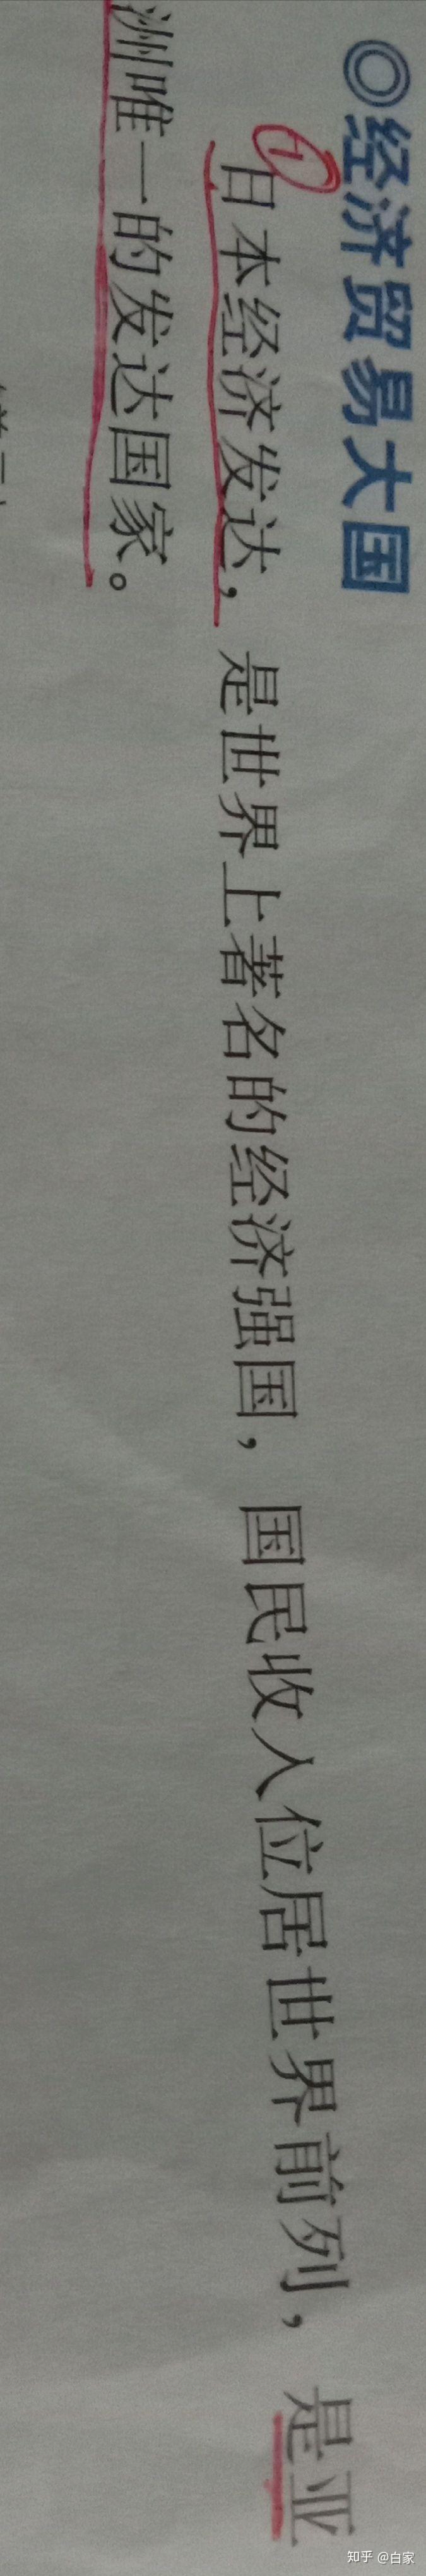 ◎经济贸易大国
①日本经济发达，是世界上著名的经济强国，国民收入位居世界前列，是亚
洲唯一的发达国家。
知乎 @白家